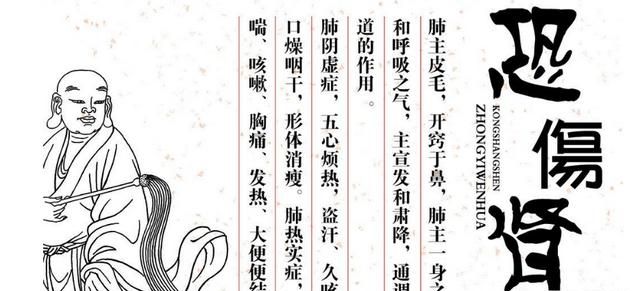 恐傷肾
KONGSHANGSHEN
ZHONGYIWENHUA
肺主皮毛，开窍于鼻，肺主一身之
和呼吸之气，主宣发和肃降，通调
道的作用。
肺阴虚症，五心烦热，盗汗、久咳
口燥咽干，形体消瘦。肺热实症，
喘、咳嗽、胸痛、发热、大便便结